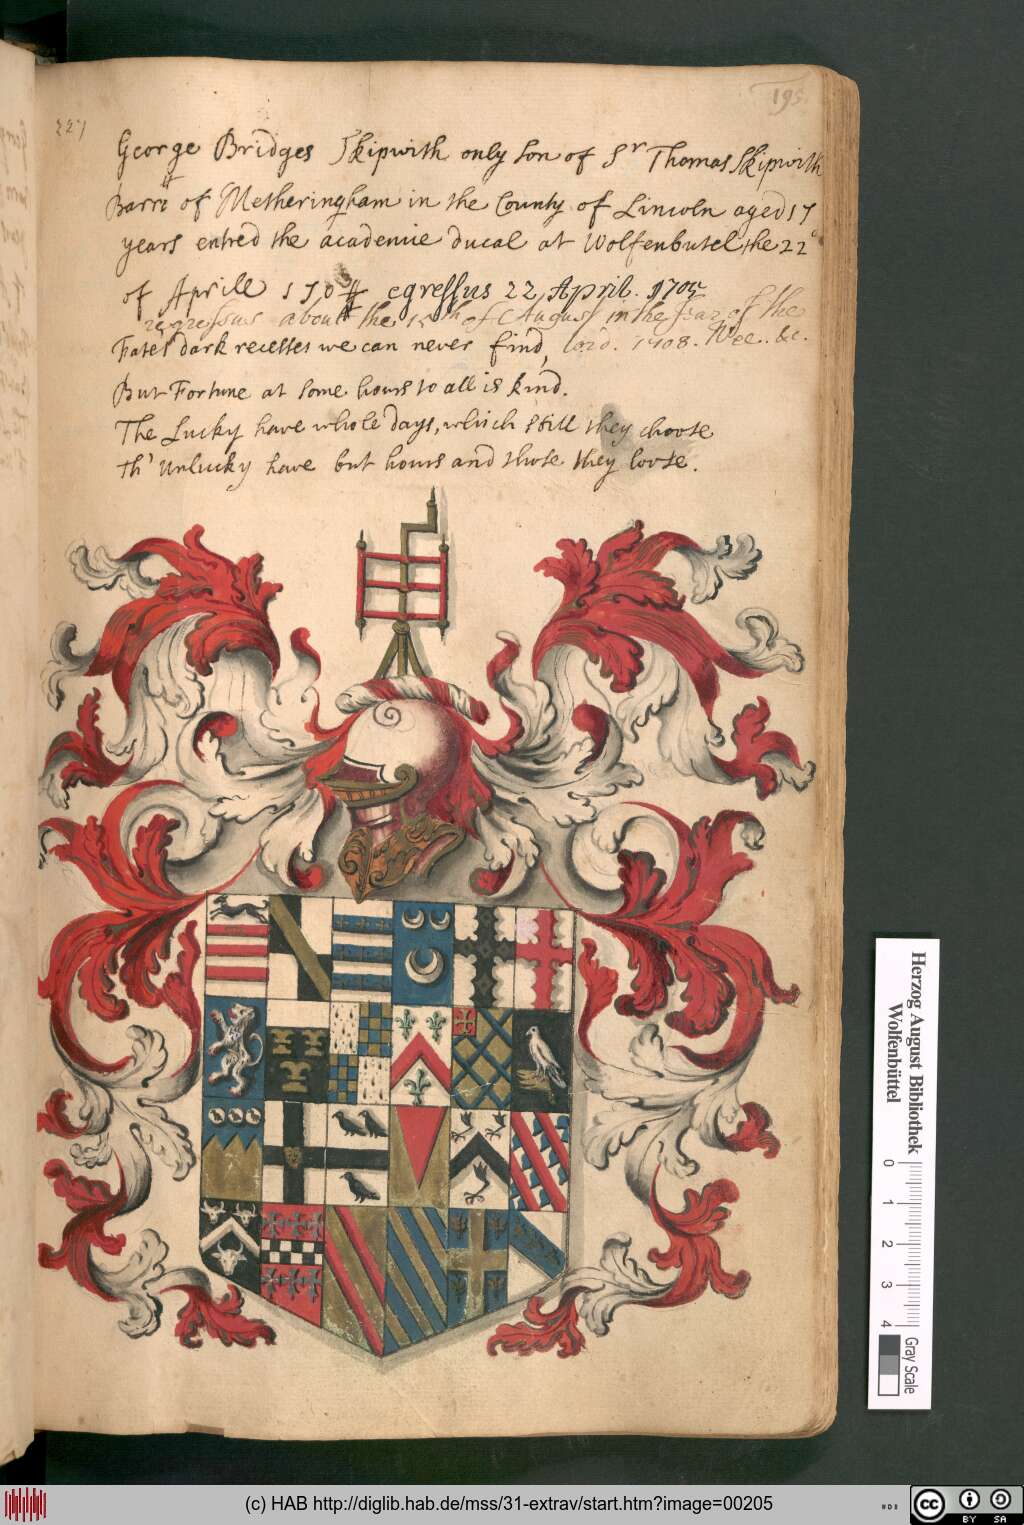 195.
227
George Bridges Skipwith only son of Sr Thomas Skipwith
Barrtt of Metheringham in the County of Lincoln aged 17
years entred the academie ducal at Wolfenbutel the 22d
of Aprill 1704 egressus 22 April. 1705
regressus about the 15th of August in the Year of the
Fates dark recesses we can never find, lord. 1708. &c.
But Fortune at some hours to all is kind.
The Lucky have whole days, which still they choose
Th' Unlucky have but hours and those they loose.
Herzog August Bibliothek
Wolfenbüttel
0 1 2 3 4
Gray Scale
(c) HAB http://diglib.hab.de/mss/31-extrav/start.htm?image=00205
cc BY SA